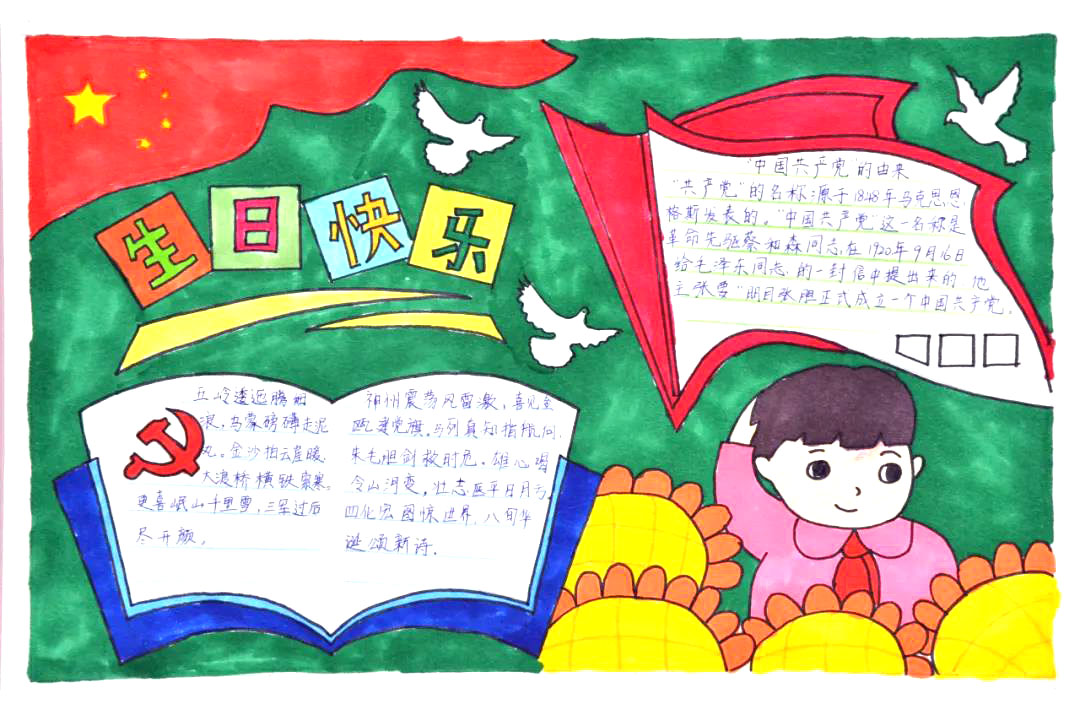 生日快乐
"中国共产党"的由来
"共产党"的名称源于1848年马克思恩
格斯发表的。"中国共产党"这一名称是
革命先驱蔡和森同志在1920年9月16日
给毛泽东同志的一封信中提出来的 他
主张要"明目张胆正式成立一个中国共产党.
五岭逶迤腾细
浪,乌蒙磅礴走泥
丸。金沙拍云崖暖,
大渡桥横铁索寒。
更喜岷山千里雪,三军过后
尽开颜。
神州震荡风雷激,喜见
马列真知指航向,
朱毛胆剑救时危。雄心喝
令山河变,壮志
四化宏图惊世界,八旬华
诞颂新诗.